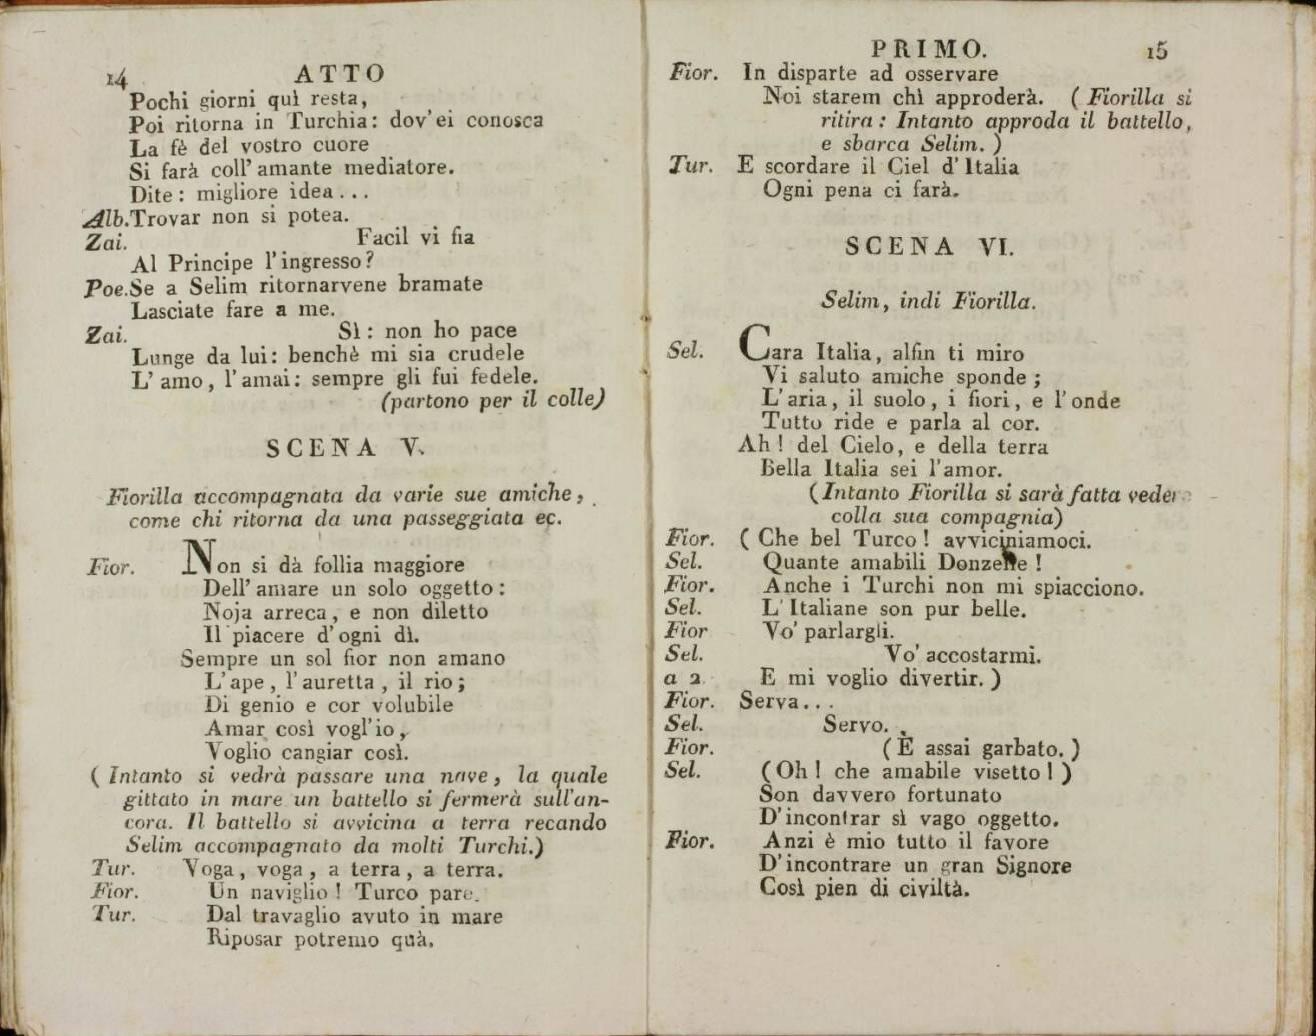 14 ATTO
Pochi giorni quì resta,
Poi ritorna in Turchia: dov'ei conosca
La fè del vostro cuore
Si farà coll'amante mediatore.
Dite: migliore idea...
Alb. Trovar non si potea.
Zai. Facil vi fia
Al Principe l'ingresso?
Poe. Se a Selim ritornarvene bramate
Lasciate fare a me.
Zai. Sì: non ho pace
Lunge da lui: benchè mi sia crudele
L'amo, l'amai: sempre gli fui fedele.
(partono per il colle)
SCENA V.
Fiorilla accompagnata da varie sue amiche,
come chi ritorna da una passeggiata ec.
Fior. Non si dà follia maggiore
Dell'amare un solo oggetto:
Noja arreca, e non diletto
Il piacere d'ogni dì.
Sempre un sol fior non amano
L'ape, l'auretta, il rio;
Di genio e cor volubile
Amar così vogl'io,
Voglio cangiar così.
(Intanto si vedrà passare una nave, la quale
gittato in mare un battello si fermerà sull'an-
cora. Il battello si avvicina a terra recando
Selim accompagnato da molti Turchi.)
Tur. Voga, voga, a terra, a terra.
Fior. Un naviglio! Turco pare.
Tur. Dal travaglio avuto in mare
Riposar potremo quà.
PRIMO. 15
Fior. In disparte ad osservare
Noi starem chì approderà. (Fiorilla si
ritira: Intanto approda il battello,
e sbarca Selim.)
Tur. E scordare il Ciel d'Italia
Ogni pena ci farà.
SCENA VI.
Selim, indi Fiorilla.
Sel. Cara Italia, alfin ti miro
Vi saluto amiche sponde;
L'aria, il suolo, i fiori, e l'onde
Tutto ride e parla al cor.
Ah! del Cielo, e della terra
Bella Italia sei l'amor.
(Intanto Fiorilla si sarà fatta vedere
colla sua compagnia)
Fior. (Che bel Turco! avviciniamoci.
Sel. Quante amabili Donzelle!
Fior. Anche i Turchi non mi spiacciono.
Sel. L'Italiane son pur belle.
Fior Vo' parlargli.
Sel. Vo' accostarmi.
a 2. E mi voglio divertir.)
Fior. Serva...
Sel. Servo.
Fior. (È assai garbato.)
Sel. (Oh! che amabile visetto!)
Son davvero fortunato
D'incontrar sì vago oggetto.
Fior. Anzi è mio tutto il favore
D'incontrare un gran Signore
Così pien di civiltà.